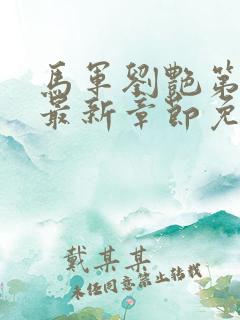 馬軍劉艷第
最新章節免
戴某某
未經同意禁止轉載